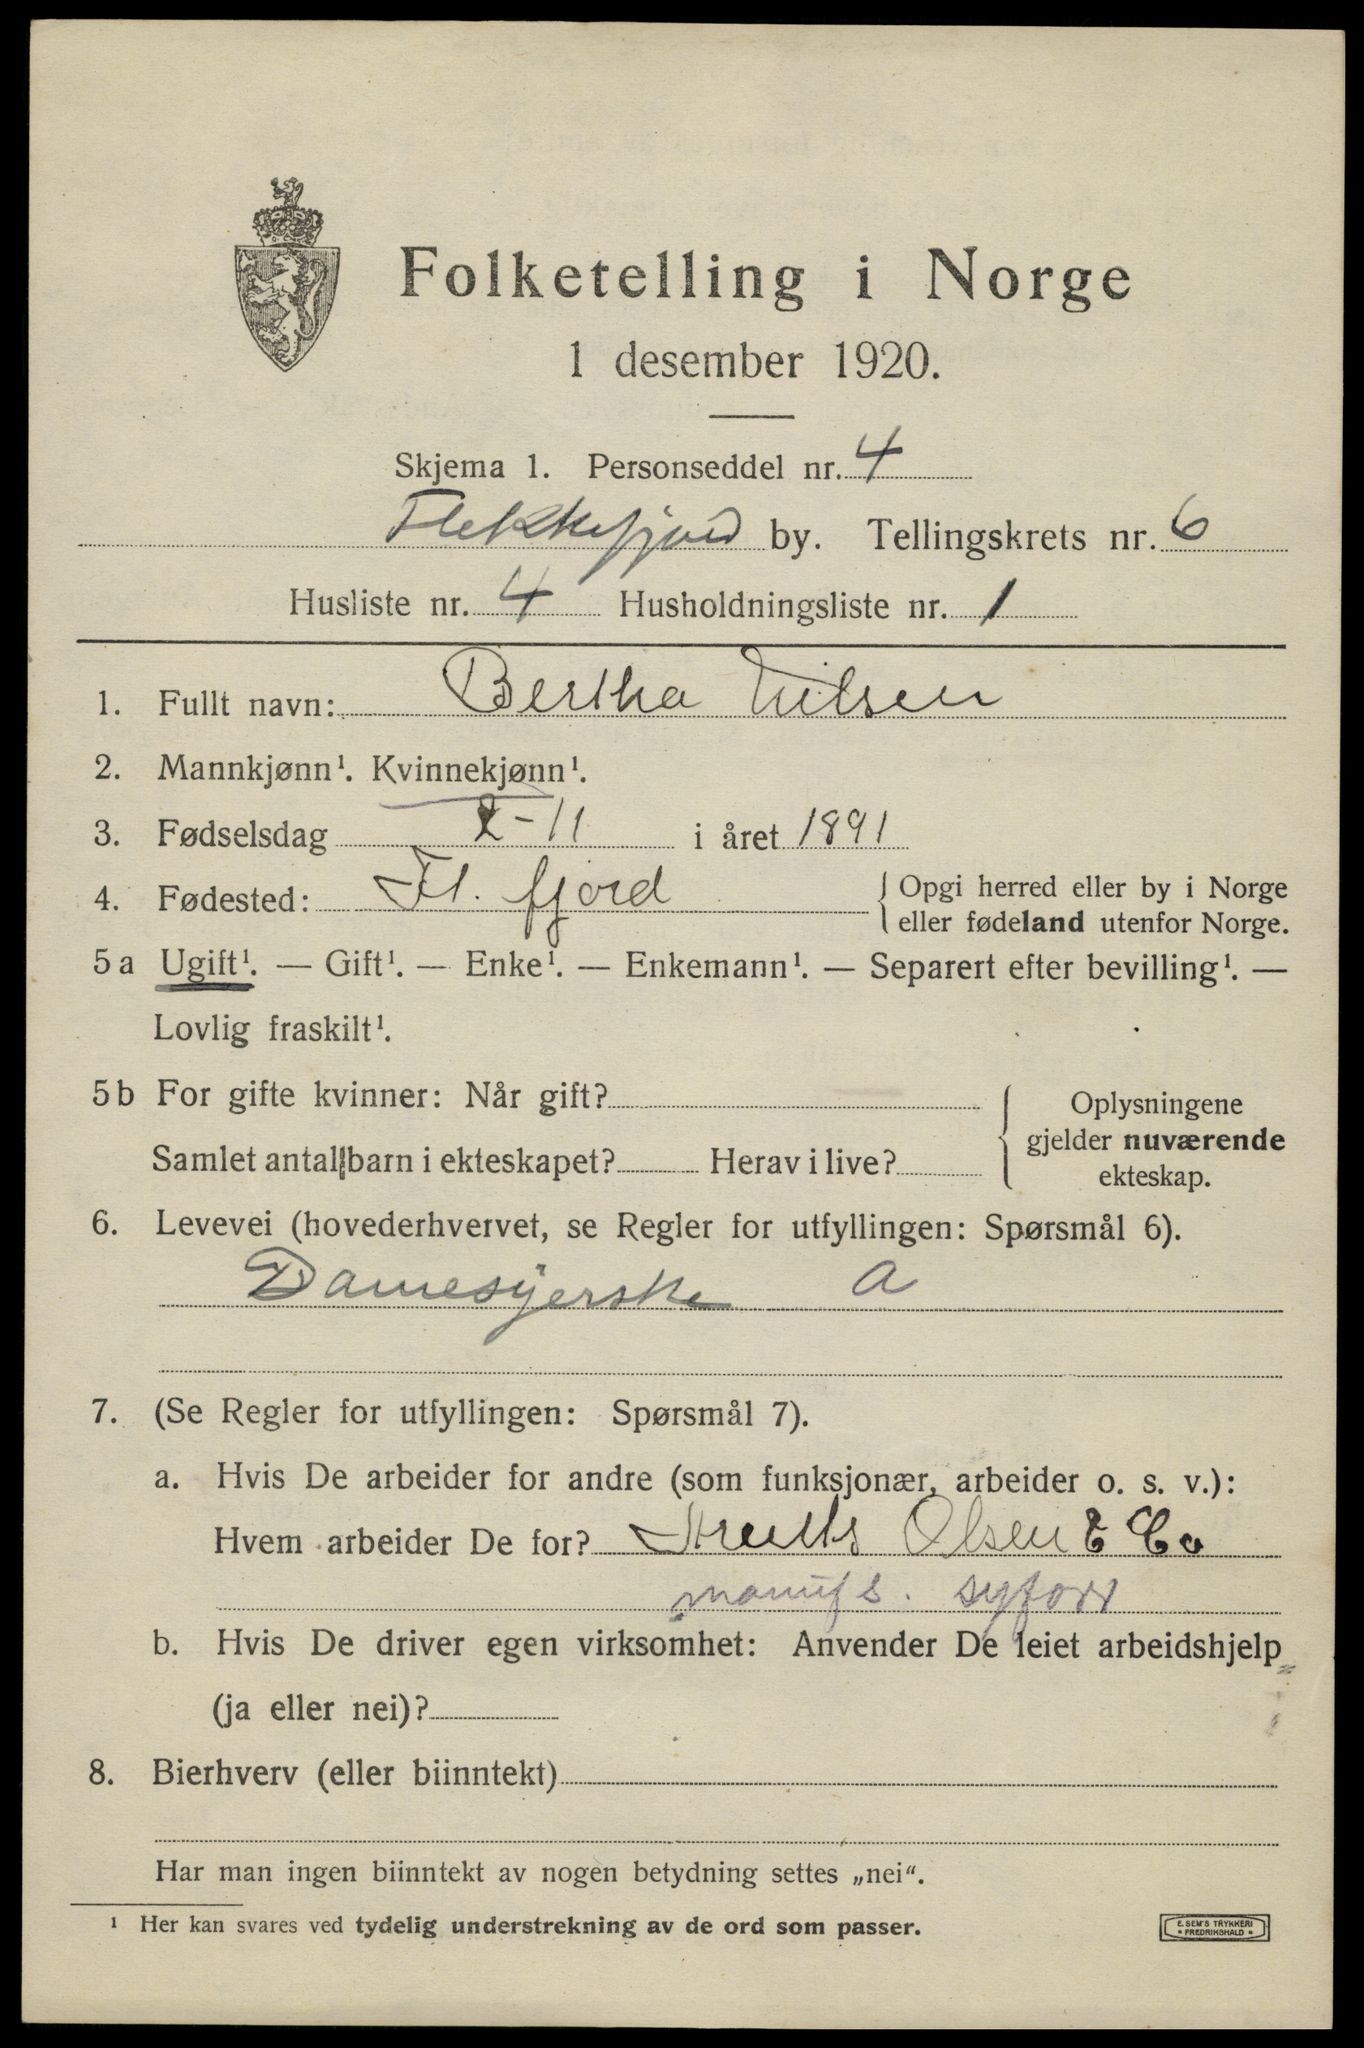 Folketelling i Norge
1 desember 1920.
Skjema 1. Personseddel nr. 4
Flekkefjord by. Tellingskrets nr. 6
Husliste nr. 4 Husholdningsliste nr. 1
1. Fullt navn: Bertha Nilsen
2. Mannkjønn¹. Kvinnekjønn¹.
3. Fødselsdag 2-11 i året 1891
4. Fødested: Fl. fjord { Opgi herred eller by i Norge
eller fødeland utenfor Norge.
5a Ugift¹. — Gift¹. — Enke¹. — Enkemann¹. — Separert efter bevilling¹. —
Lovlig fraskilt¹.
5b For gifte kvinner: Når gift?
Samlet antal barn i ekteskapet? Herav i live?
{ Oplysningene
gjelder nuværende
ekteskap.
6. Levevei (hovederhvervet, se Regler for utfyllingen: Spørsmål 6).
Damesyerske a
7. (Se Regler for utfyllingen: Spørsmål 7).
a. Hvis De arbeider for andre (som funksjonær, arbeider o. s. v.):
Hvem arbeider De for? Olsen & Co
manuf s. syforr
b. Hvis De driver egen virksomhet: Anvender De leiet arbeidshjelp
(ja eller nei)?
8. Bierhverv (eller biinntekt)
Har man ingen biinntekt av nogen betydning settes „nei“.
¹ Her kan svares ved tydelig understrekning av de ord som passer.
E. SEM'S TRYKKERI
* FREDRIKSHALD *